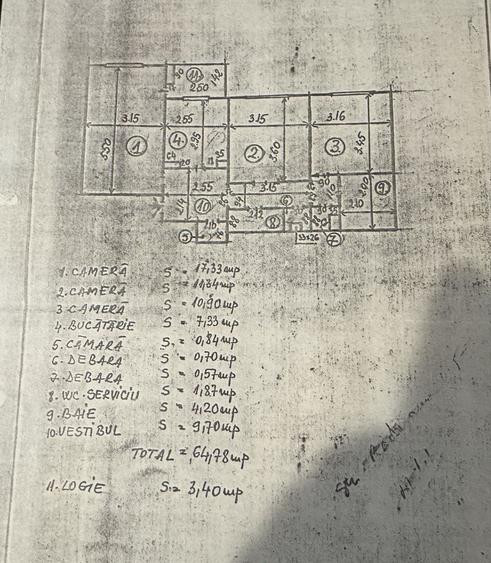 90
11
142
2.60
3.15
2.55
3.15
3.16
5.50
1
4
2.95
2
3.60
3
3.45
2.55
3.15
90
9
10
2.14
2.12
6
8
2.10
5
33x26
7
1. CAMERĂ S = 17,33 mp
2. CAMERĂ S = 11,34 mp
3 CAMERĂ S = 10,90 mp
4. BUCĂTĂRIE S = 7,33 mp
5. CĂMARĂ S. = 0,84 mp
6. DEBARA S = 0,70 mp
7. DEBARA S = 0,57 mp
8. WC. SERVICIU S = 1,87 mp
9. BAIE S = 4,20 mp
10. VESTIBUL S = 9,70 mp
TOTAL = 64,78 mp
11. LOGIE S. = 3,40 mp